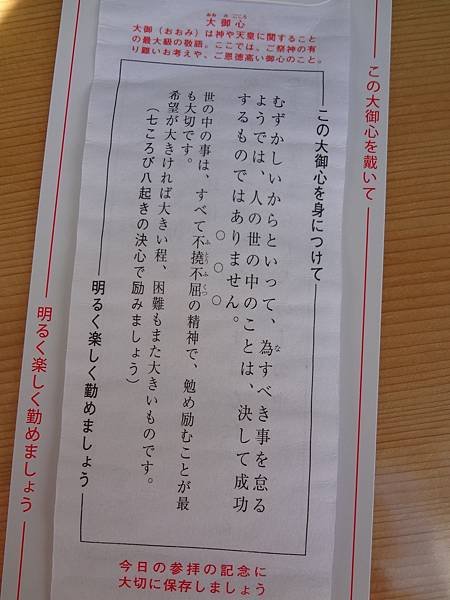 おお み ごころ
大御心
大御（おおみ）は神や天皇に関すること
の最大級の敬語。ここでは、ご祭神の有
り難いお考えや、ご恩徳高い御心のこと。
この大御心を戴いて
この大御心を身につけて
むずかしいからといって、為すべき事を怠る
な
ようでは、人の世の中のことは、決して成功
するものではありません。
○○○
世の中の事は、すべて不撓不屈の精神で、勉め励むことが最
ふとうふくつ
も大切です。
希望が大きければ大きい程、困難もまた大きいものです。
（七ころび八起きの決心で励みましょう）
明るく楽しく勤めましょう
明るく楽しく勤めましょう
今日の参拝の記念に
大切に保存しましょう